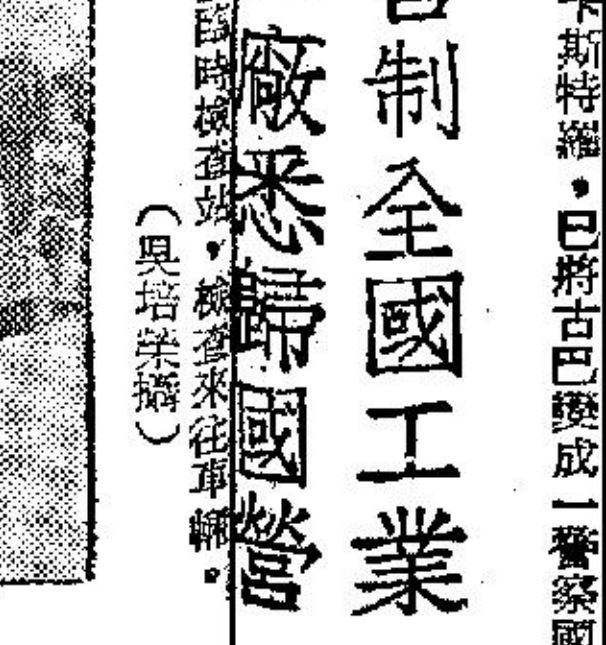 斯特羅，已將古巴變成一警察國
制全國工業
廠悉歸國營
臨時檢查站，檢查來往車輛。
（吳培榮攝）